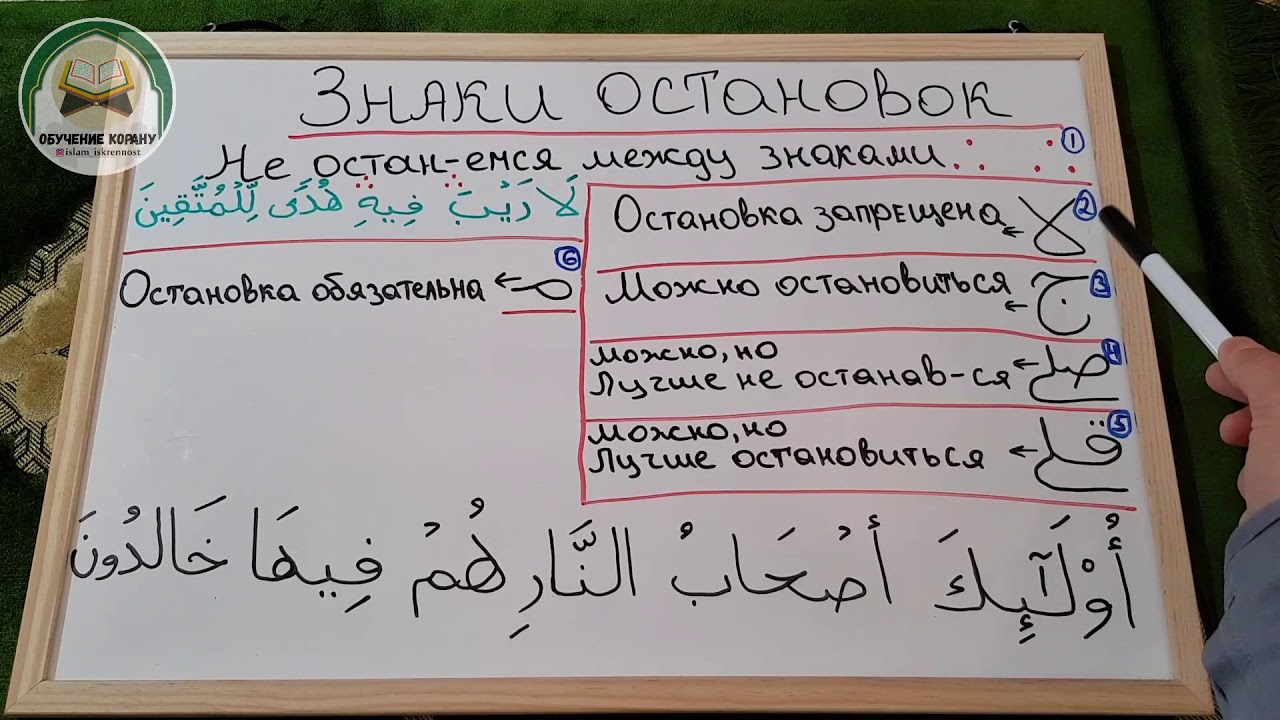 ОБУЧЕНИЕ КОРАНУ
islam_iskrennost
Знаки остановок
Не остан-емся между знаками ∴ ∴ 1
لَا رَيْبَ ۛ فِيهِ ۛ هُدًى لِّلْمُتَّقِينَ
Остановка запрещена ← لا 2
Можно остановиться ← ج 3
можно, но
Лучше не останав-ся ← صلے 4
можно, но
Лучше остановиться ← قلے 5
Остановка обязательна ← م 6
أُوْلَـٰٓئِكَ أَصْحَابُ النَّارِ هُمْ فِيهَا خَالِدُونَ